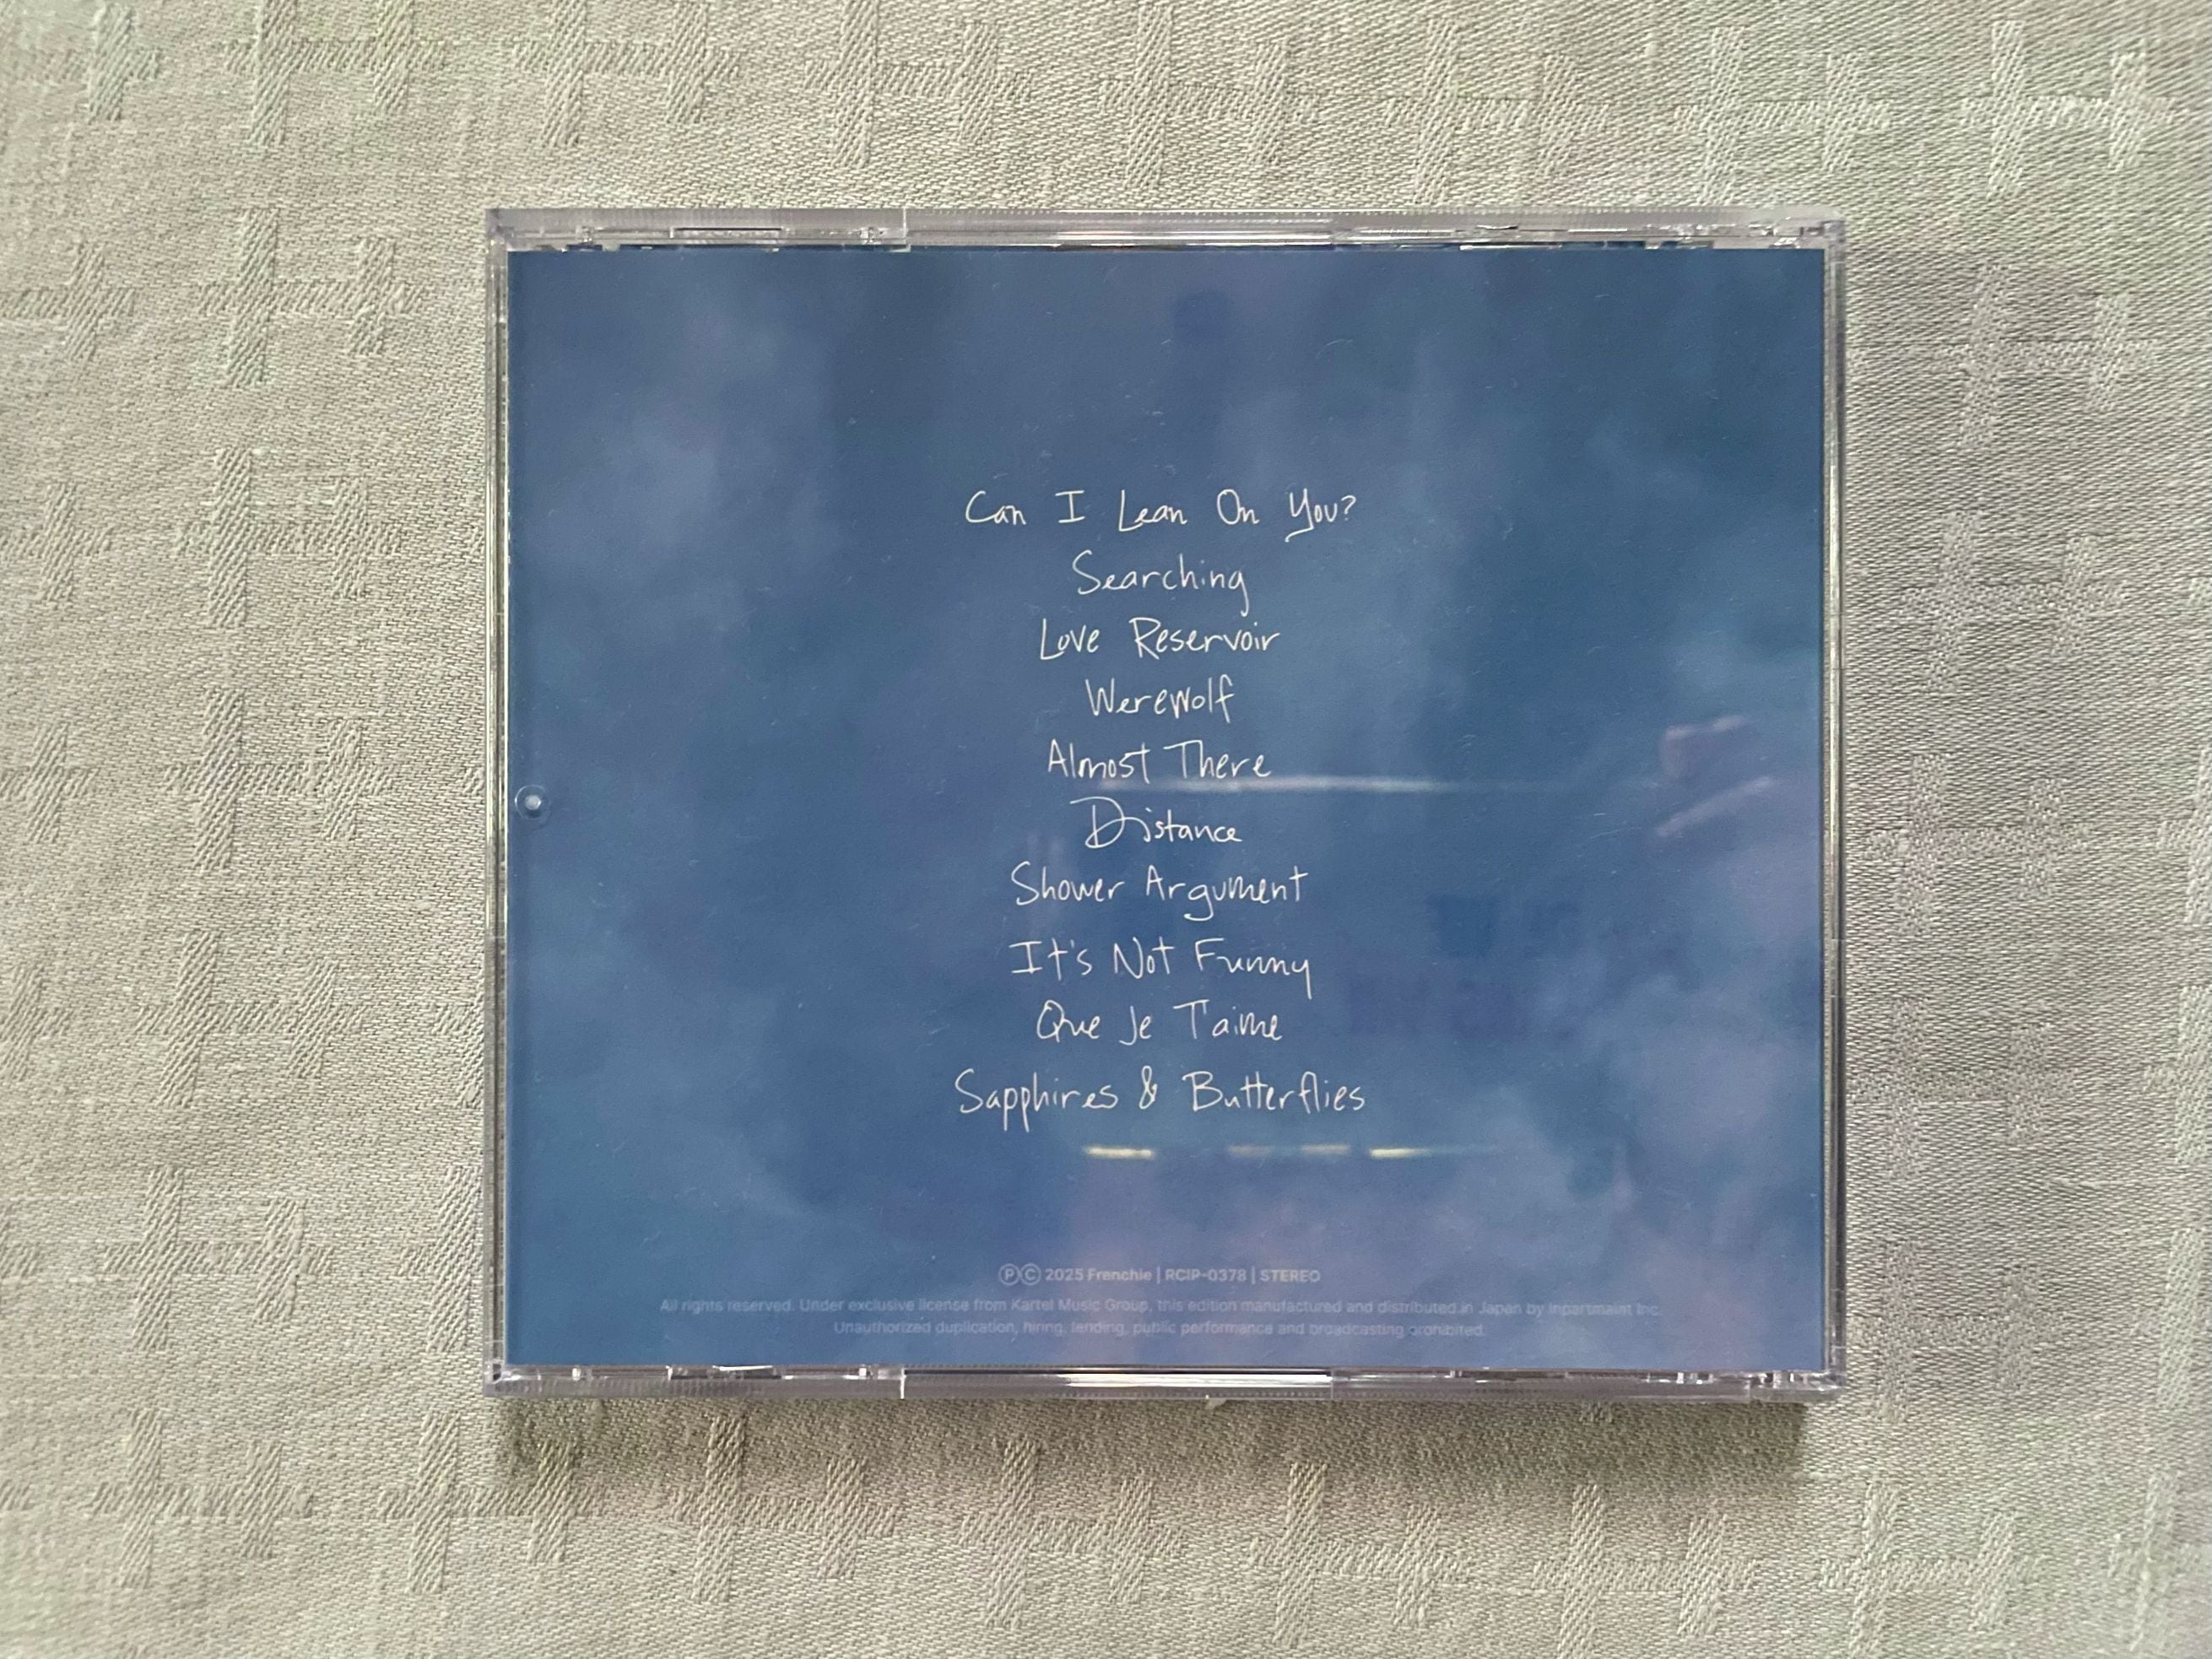 Can I Lean On You?
Searching
Love Reservoir
Werewolf
Almost There
Distance
Shower Argument
It's Not Funny
Que Je T'aime
Sapphires & Butterflies
ⓅⒸ 2025 Frenchie | RCIP-0378 | STEREO
All rights reserved. Under exclusive license from Kartel Music Group, this edition manufactured and distributed in Japan by Inpartmaint Inc.
Unauthorized duplication, hiring, lending, public performance and broadcasting prohibited.